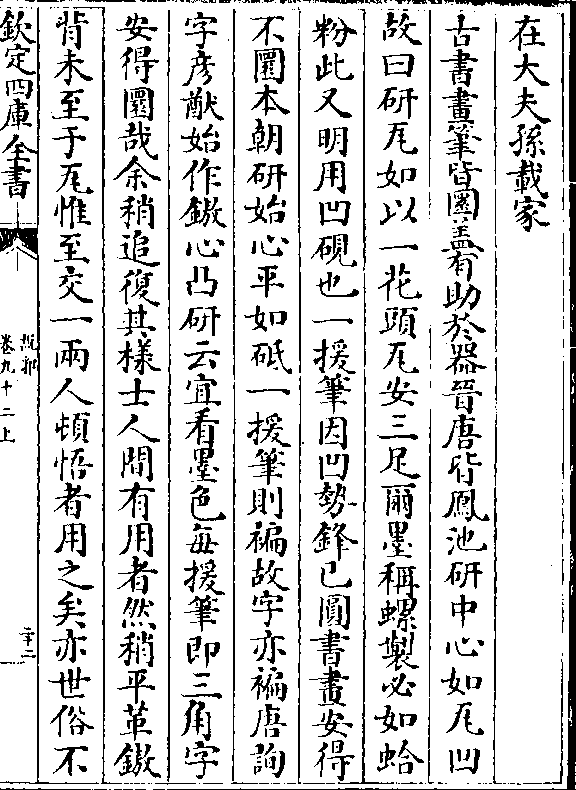 在大夫孫載家
古書畫筆皆圜蓋有助於器晉唐皆鳳池研中心如瓦凹
故曰研瓦如以一花頭瓦安三足爾墨稱螺製必如蛤
粉此又明用凹硯也一援筆因凹勢鋒已圓書畫安得
不圜本朝研始心平如砥一援筆則褊故字亦褊唐詢
字彦猷始作鏾心凸研云宜看墨色每援筆即三角字
安得圜哉余稍追復其様士人間有用者然稍平革鏾
背未至于瓦惟至交一兩人頓悟者用之矣亦世俗不
欽定四庫全書
説郛
卷九十二上
二十二